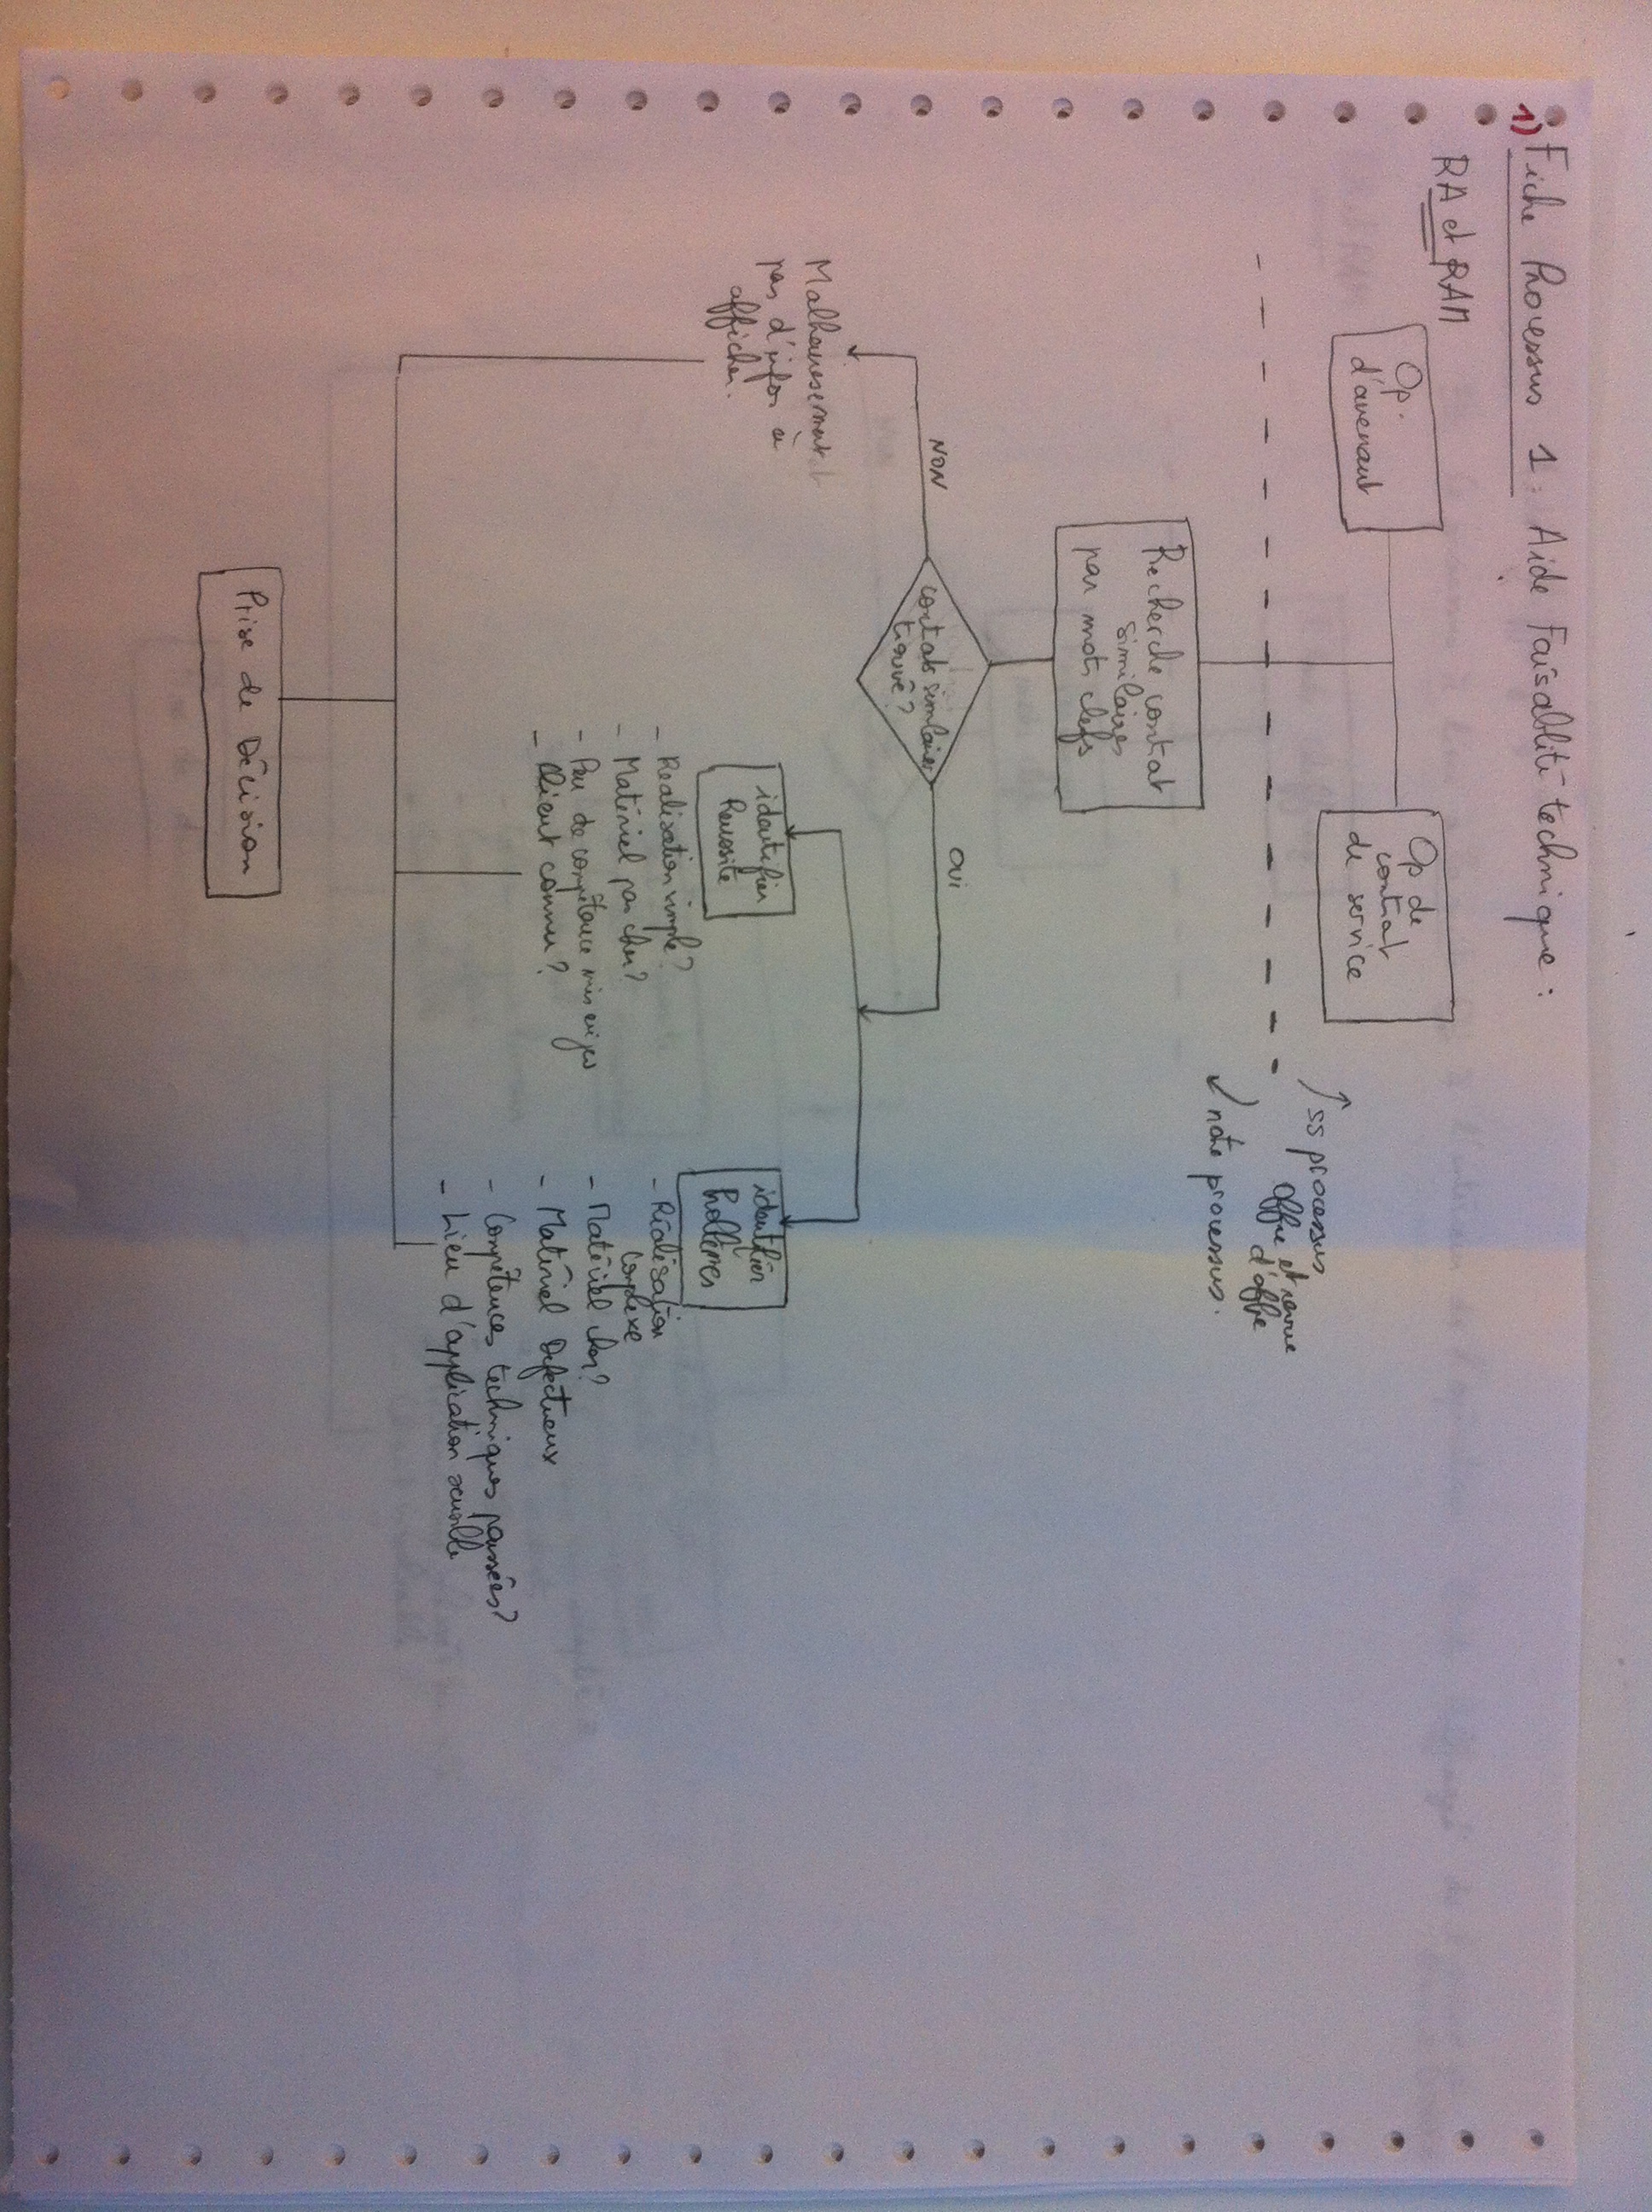 1) Fiche Processus 1 : Aide Faisabilité technique :
RA et RAM
Op.
d'avenant
Op de
contrat
de service
ss processus
offre et revue
d'offre
notre processus.
Recherche contrat
similaires
par mots clefs
contrats similaires
trouvé ?
NON
OUI
Malheureusement
pas d'infos à
afficher.
identifier
Reussite
- Realisation simple ?
- Matériel pas cher ?
- Peu de compétence mis en jeu
- Client connu ?
identifier
Problèmes
- Réalisation
complexe
- Matériel cher ?
- Matériel Défectueux
- Compétences techniques poussées ?
- Lieu d'application sensible
Prise de Décision